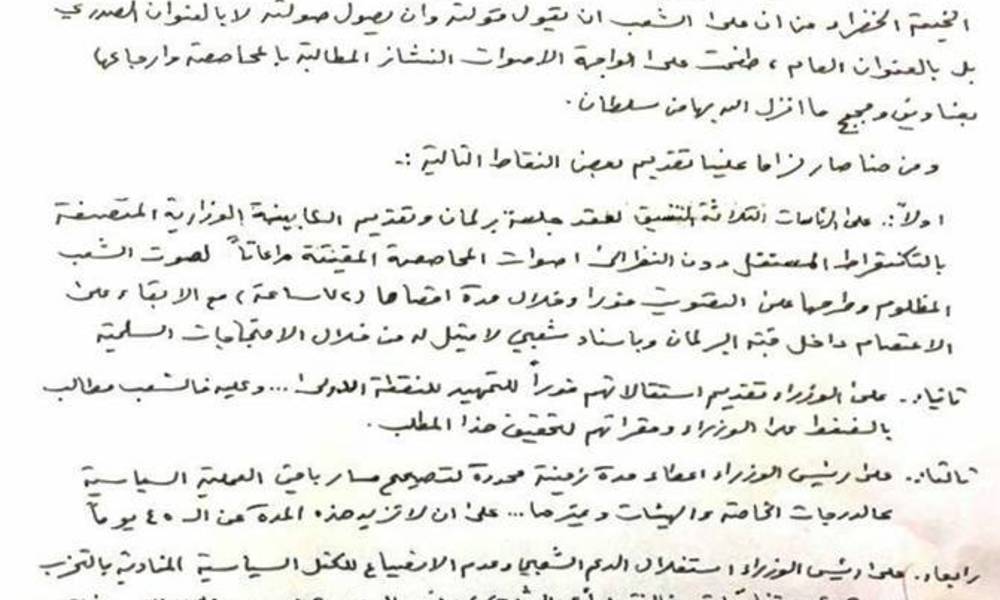 الخيمة الخضراء من ان على الشعب ان يقول قولته وان يصول صولته لا بالعنوان الصدري
بل بالعنوان العام ، طفت على الواجهة الاصوات النشاز المطالبة بالمحاصصة وارجاعها
بعناوين وحجج ما انزل الله بها من سلطان .
ومن هنا صار لزاما علينا تقديم بعض النقاط التالية :ـ
اولاً :. على الرئاسات الثلاثة التنسيق لعقد جلسة برلمان وتقديم الكابينة الوزارية المتصفة
بالتكنقراط المستقل دون النظر الى اصوات المحاصصة المقيتة مراعاتاً لصوت الشعب
المظلوم وطرحها على التصويت فورا وخلال مدة اقصاها (٧٢ ساعة) مع الابقاء على
الاعتصام داخل قبة البرلمان وباسناد شعبي لا مثيل له من خلال الاحتجاجات السلمية
ثانيا :. على الوزراء تقديم استقالاتهم فوراً للتمهيد للنقطة الاولى ... وعليه فالشعب مطالب
بالضغط على الوزراء ومقراتهم لتحقيق هذا المطلب .
ثالثا :. على رئيس الوزراء اعطاء مدة زمنية محددة لتصحيح مسار باقي العملية السياسية
كالدرجات الخاصة والهيئات وغيرها ... على ان لا تزيد هذه المدة عن الـ ٤٥ يوماً
رابعا :. على رئيس الوزراء استغلال الدعم الشعبي وعدم الانصياع للكتل السياسية المنادية بالتحزب